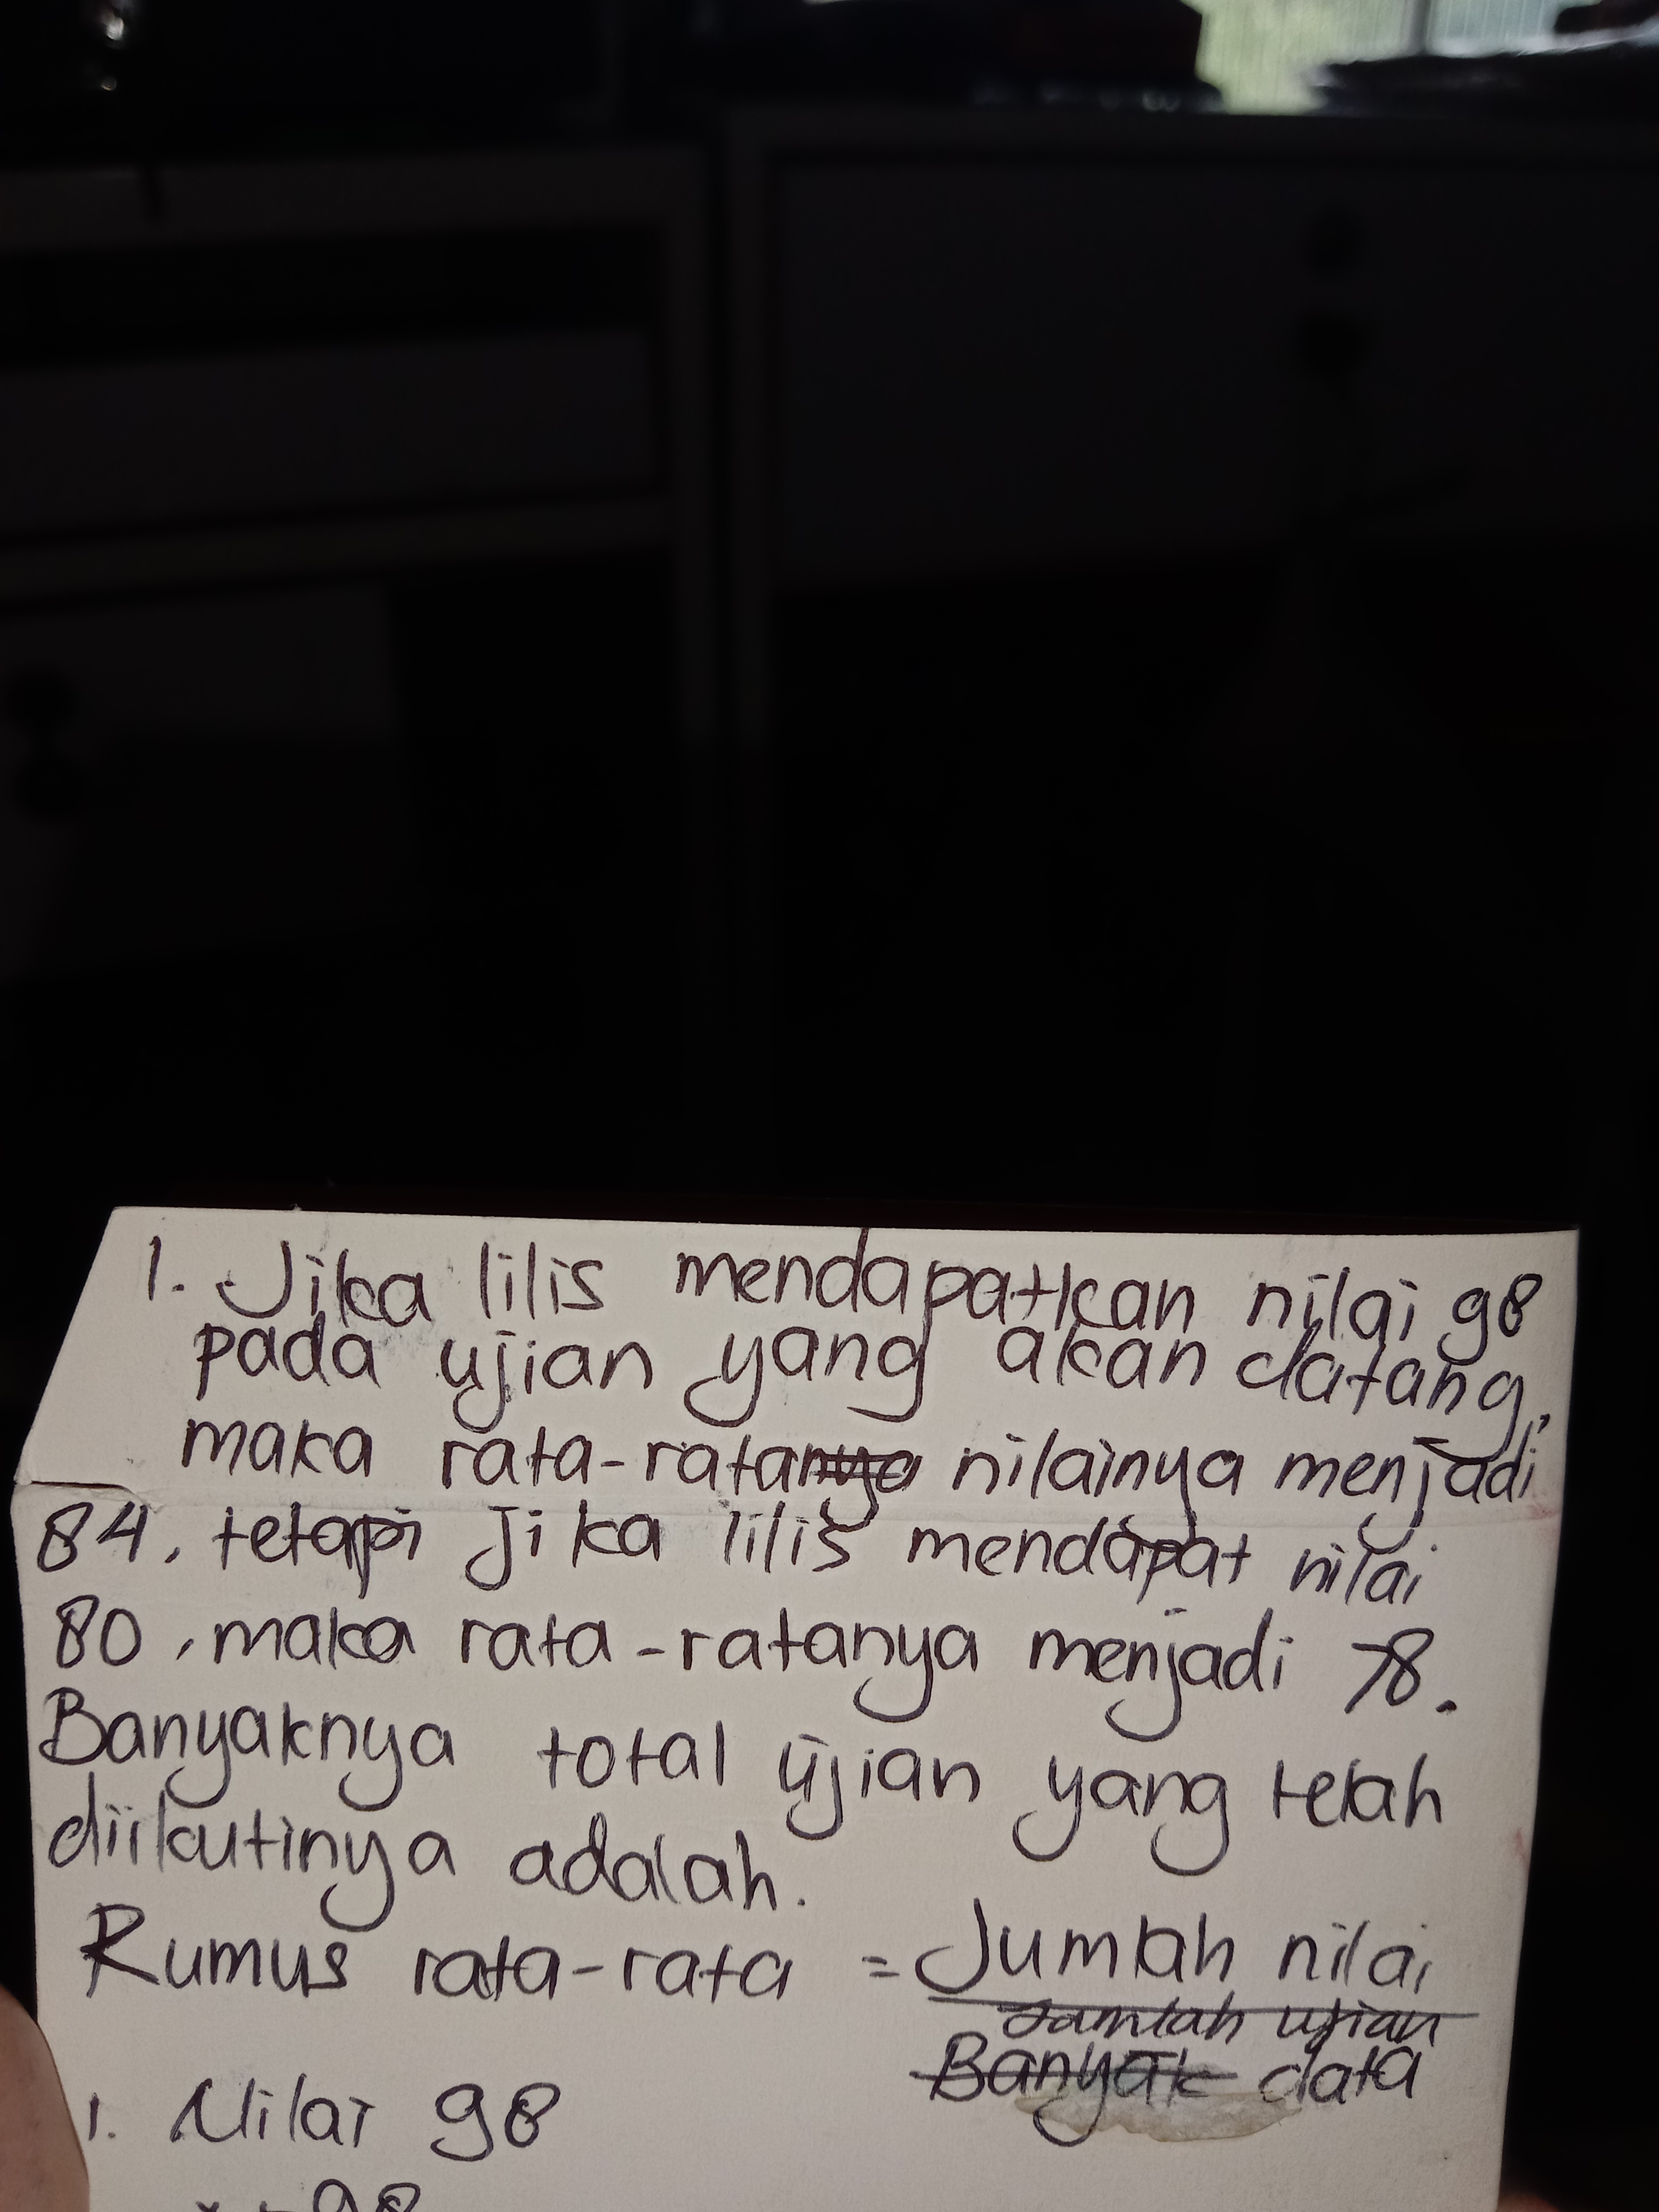 1. Jika lilis mendapatkan nilai 98
pada ujian yang akan datang,
maka rata-ratanya nilainya menjadi
84, tetapi jika lilis mendapat nilai
80, maka rata-ratanya menjadi 78.
Banyaknya total ujian yang telah
diikutinya adalah.
Rumus rata-rata = Jumlah nilai
Jumlah ujian
Banyak data
1. Nilai 98